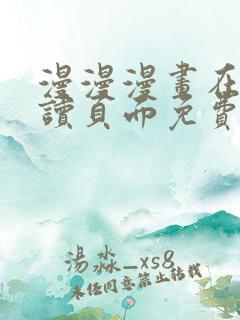 漫漫漫畫在
讀頁面免費
湯淼_xs8
未經同意禁止轉載